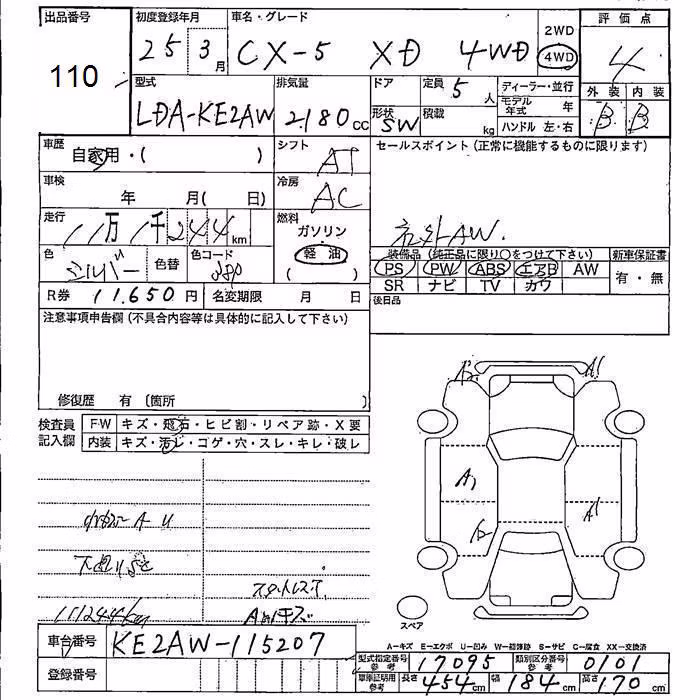 出品番号 初度登録年月 車名・グレード 2WD 評価点
110 25 3月 CX-5 XD 4WD 4WD 4
型式 排気量 ドア 定員 5人 ディーラー・並行 外装 内装
LDA-KE2AW 2180cc 形状 SW 積載 kg モデル年式 年 B B
ハンドル 左・右
車歴 自家用・( ) シフト AT セールスポイント (正常に機能するものに限ります)
車検 年 月( 日) 冷房 AC
走行 11万1千244km 燃料 ガソリン 社外AW.
色 シルバー 色替 色コード 軽油 ( )
装備品 (純正品に限り○をつけて下さい) 新車保証書
PS PW ABS エアB AW 有・無
SR ナビ TV カワ
R券 11.650円 名変期限 月 日 後日品
注意事項申告欄 (不具合内容等は具体的に記入して下さい)
修復歴 有 〔箇所 〕
検査員記入欄 FW キズ・飛石・ヒビ割・リペア跡・X要
内装 キズ・汚レ・コゲ・穴・スレ・キレ・破レ
A1
A1
A1
A U
111244km
AWキズ
スペア
車台番号 KE2AW-115207
A-キズ E-エクボ U-凹み W-補修跡 S-サビ C-腐食 XX-交換済
型式指定番号 参考 17095 類別区分番号 参考 0101
登録番号 車庫証明用 参考 長さ 454cm 幅 184cm 高さ 170cm